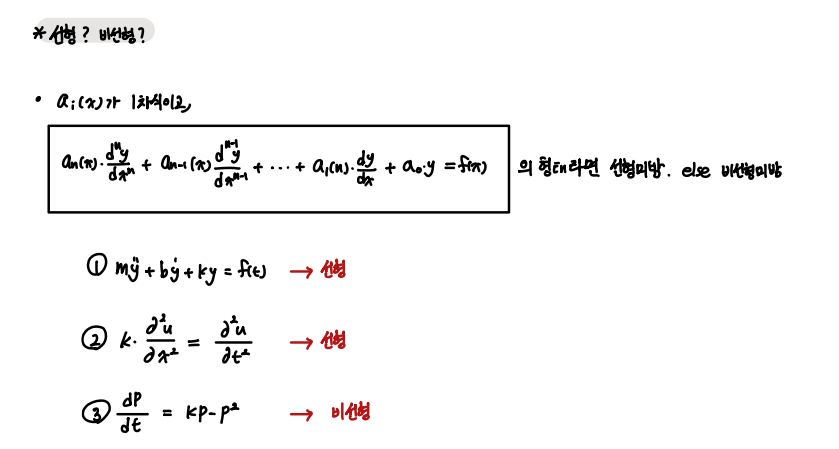 * 선형? 비선형?
• aᵢ(x)가 1차식이고,
aₙ(x)·dⁿy/dxⁿ + aₙ₋₁(x)dⁿ⁻¹y/dxⁿ⁻¹ + ··· + a₁(x)·dy/dx + a₀·y = f(x) 의 형태라면 선형미방. else 비선형미방
① mÿ + bẏ + ky = f(t) → 선형
② k·∂²u/∂x² = ∂²u/∂t² → 선형
③ dP/dt = kP - P² → 비선형